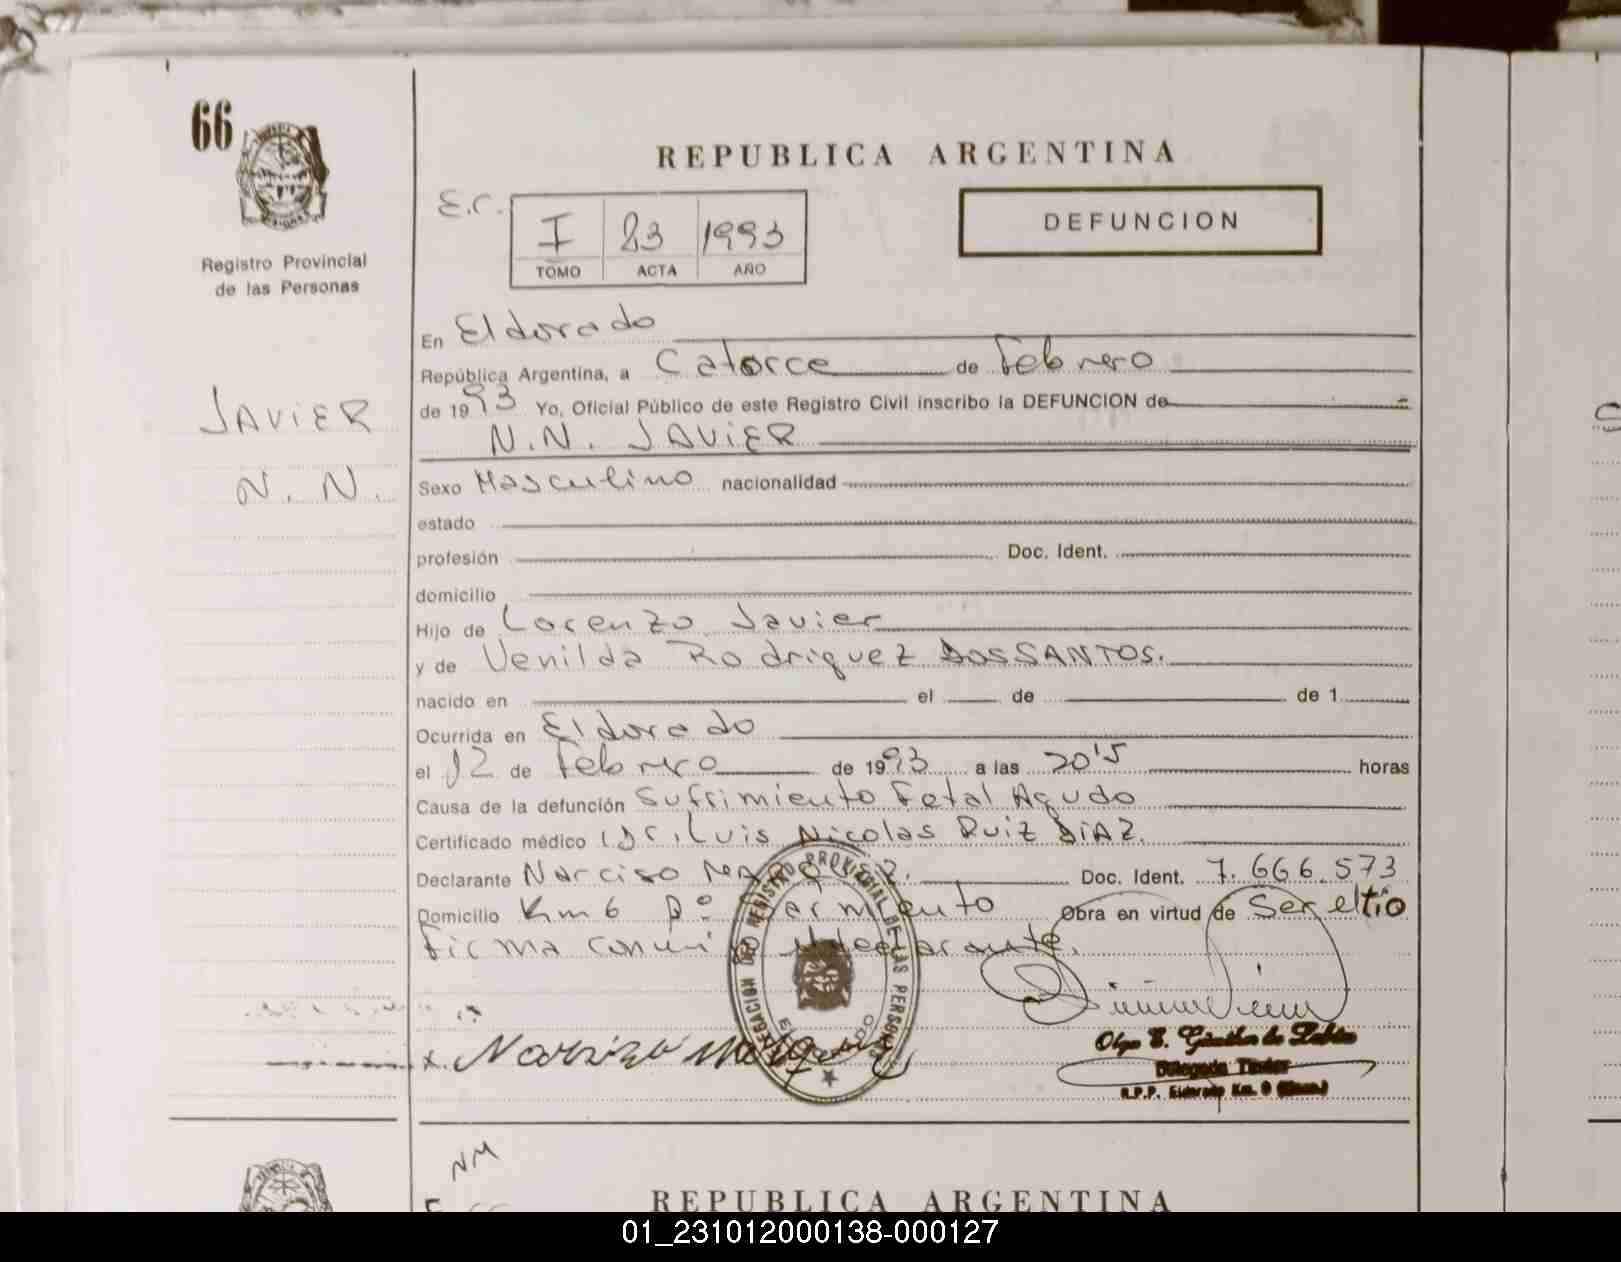 66
REPUBLICA ARGENTINA
E.C.
I 83 1993
TOMO ACTA AÑO
DEFUNCION
Registro Provincial
de las Personas
JAVIER
N. N.
En Eldorado
República Argentina, a Catorce de Febrero
de 1993 Yo, Oficial Público de este Registro Civil inscribo la DEFUNCION de
N.N. JAVIER
Sexo Masculino nacionalidad
estado
profesión Doc. Ident.
domicilio
Hijo de Lorenzo Javier
y de Venilda Rodriguez DOSSANTOS.
nacido en el de de 1
Ocurrida en Eldorado
el 12 de Febrero de 1993 a las 20'15 horas
Causa de la defunción Sufrimiento Fetal Agudo
Certificado médico Dr. Luis Nicolas Ruiz DiAZ.
Declarante Narciso Doc. Ident. 7.666.573
Domicilio Km 6 Obra en virtud de Ser el tío
firma conmigo el declarante.
DELEGACION DEL REGISTRO PROVINCIAL DE LAS PERSONAS
ELDORADO
x. Narciso
Olga E. Günther de
Delegada Titular
R.P.P. Eldorado Km. 9 (Mnes.)
NM
REPUBLICA ARGENTINA
01_231012000138-000127